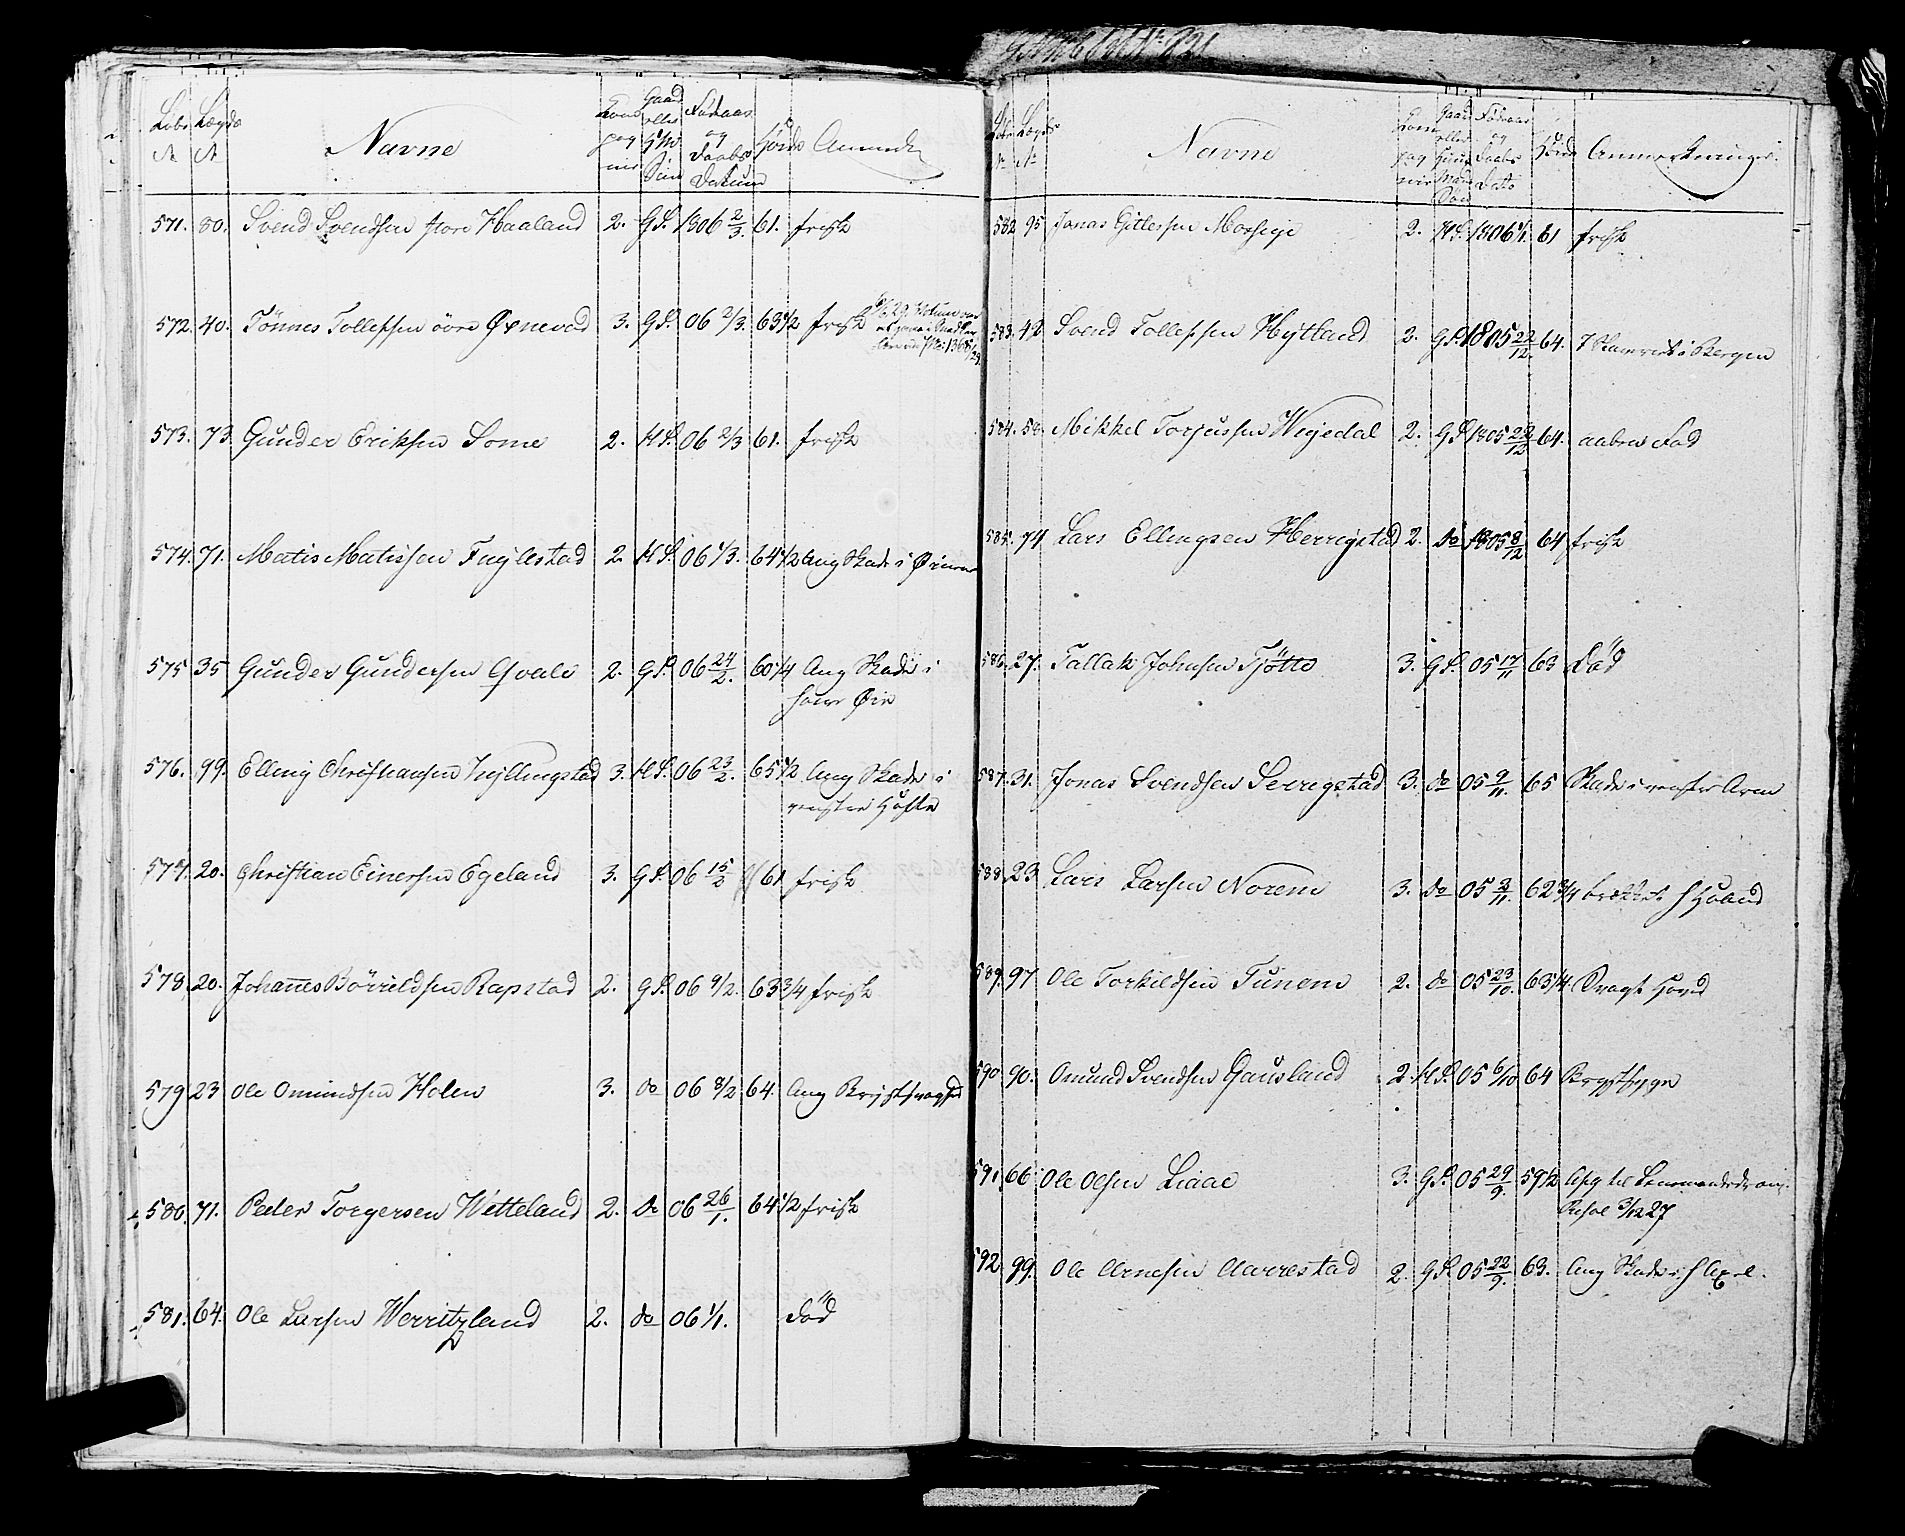 Løbe Lægds Navne Gaard eller Fødaar og Daabs Datum Høide
№ №
571. 80. Svend Svendsen store Haaland 2. GS. 1806 2/3. 61. frisk
572. 40. Tönnes Tollefsen övre Øxnevad 3. GS. 06 2/3. 63 1/2 frisk
573. 73. Gunder Eriksen Some 2. HS. 06 2/3 61. frisk
574. 71. Matis Matissen Fuglestad 2. HS. 06 1/3. 64 1/2 Ang Skade i Øinene
575 35 Gunder Gundersen Qvale 2. GS. 06 24/2. 60 1/4 Ang Skade i
høire Øie
576. 99. Elling Christiansen Hyllingstad 3. HS. 06 23/2. 65 1/2 Ang Skade i
venstre Hofte
577. 20. Christian Einersen Egeland 3. GS. 06 15/2 61 frisk
578. 20. Johannes Börrildsen Rapstad 2. GS. 06 9/2. 63 3/4 frisk
579 23 Ole Omundsen Holen 3. do 06 8/2 64. Ang Brystsvaghed
580. 71. Peder Torgersen Wetteland 2. do 06 26/1. 64 1/2 frisk
581. 64. Ole Larsen Werritzland 2. do 06 1/1. död
Løbe Lægds Navne Gaard eller Huus Mands Søn Fødaar og Daabs Dato Høide Anmærkninger.
№ №
582 95 Jonas Gitlessen Mossige 2. HS. 1806 1/1. 61 frisk
583. 42 Svend Tollefsen Hytland 2. GS. 1805 22/12. 64. i Bergen
584. 58 Mikkel Torjussen Wigedal 2. GS 1805 22/12 64. aaben Fod
585. 74 Lars Ellingsen Herrigstad 2. do 1805 8/12 64 frisk
586. 27. Tallak Johnsen Tjøtte 3. GS. 05 17/11 63 Död
587. 31. Jonas Svendsen Serrigstad 3. do 05 9/11. 65 Skade i venstre Arm
588 23 Lars Larsen Norem 3. do 05 2/11. 62 3/4
589. 97 Ole Torkildsen Tunem 2. do 05 23/10. 63 1/4
590 90. Omund Svendsen Gausland 2. HS. 05 6/10 64 Brystsyge
591 66 Ole Olsen Liaae 3. GS. 05 29/9. 59 1/2 Afg til
3/12 27
592. 99. Ole Arnesen Aarrestad 2. GS. 05 22/9. 63. Ang Skade i